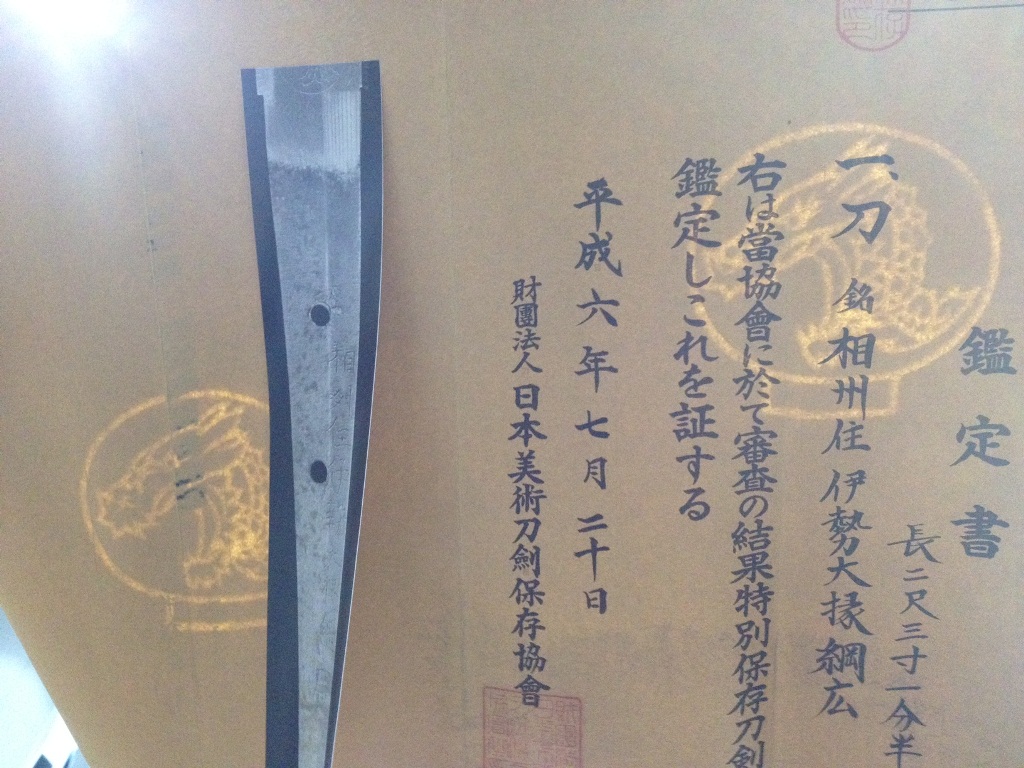 鑑定書
一刀 銘 相州住伊勢大掾綱広
長二尺三寸一分半
右は當協會に於て審査の結果特別保存刀剣
鑑定しこれを証する
平成六年七月二十日
財團法人日本美術刀劍保存協會
相州住